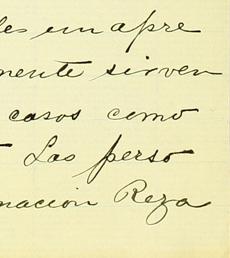 les em apre
mente sirven
casos como
Las perso
nacion Reza